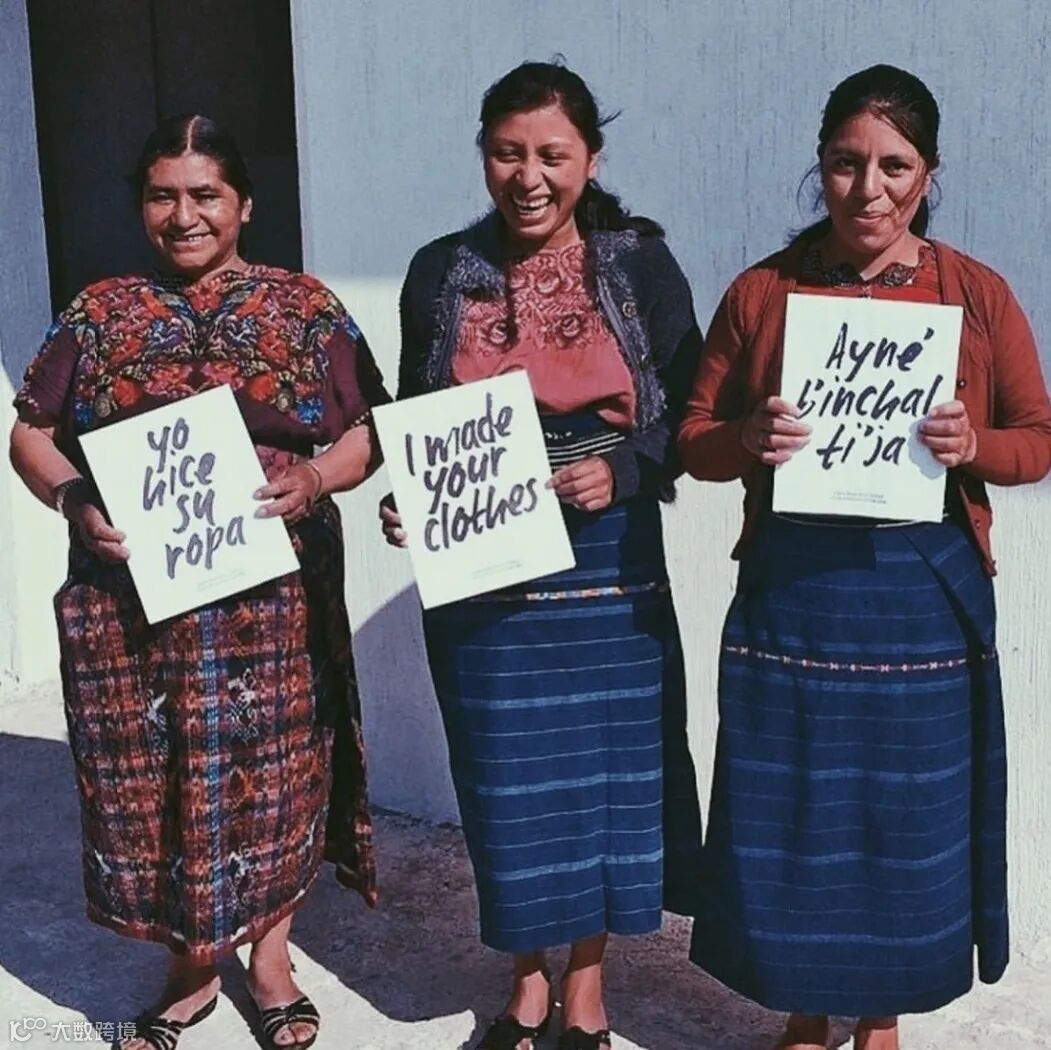 yo
hice
su
ropa
I made
your
clothes
Ayné
b'inchal
ti'ja
大数跨境